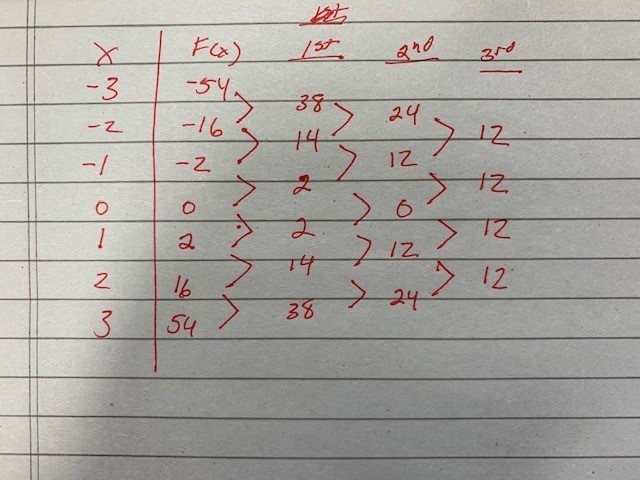 X F(x) 1st 2nd 3rd
-3 -54
38 24
-2 -16 12
14
-1 -2 12
2 12
0 0 0
2 12
1 2 12
14
2 16 12
38 24
3 54